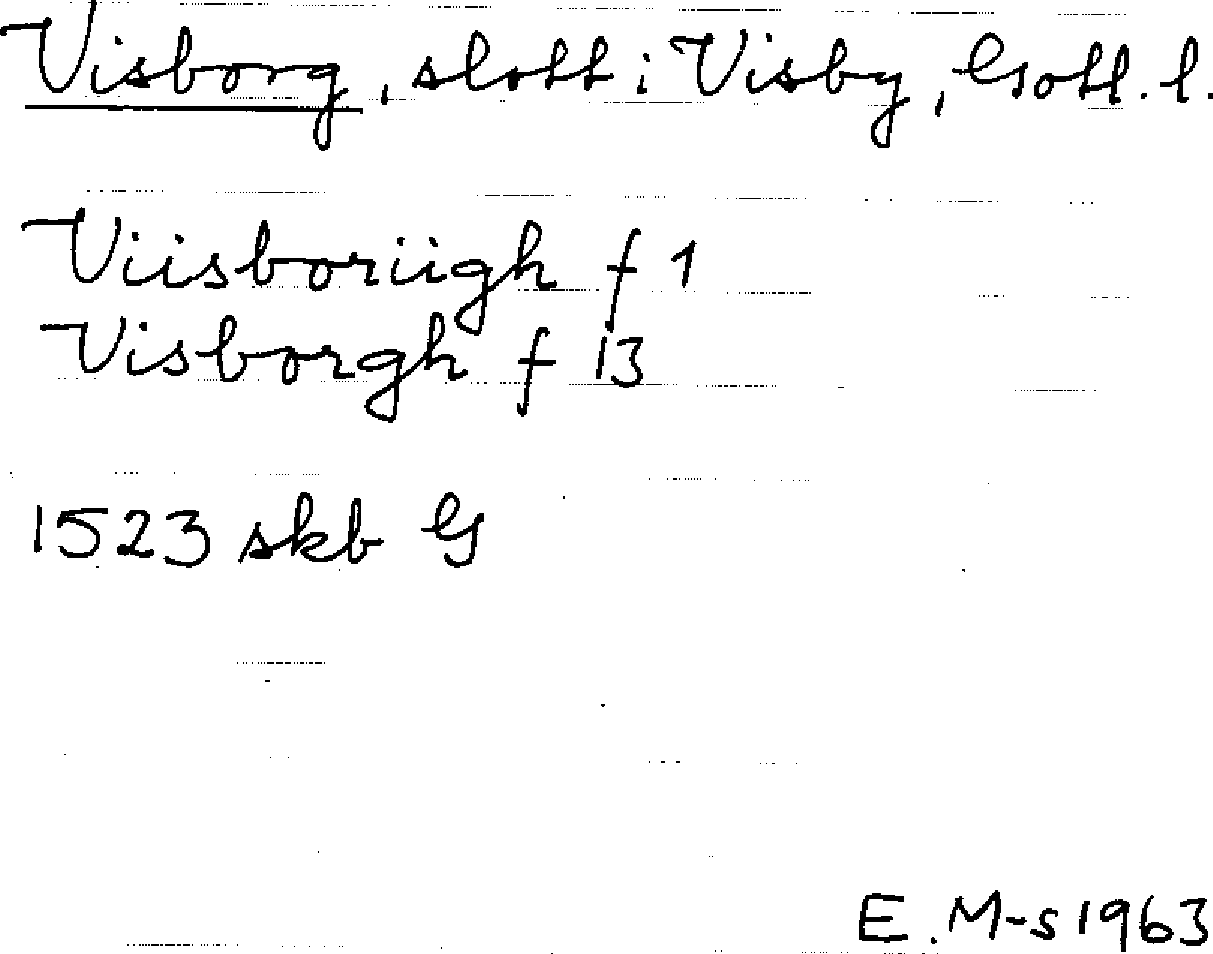 Visborg, slott i Visby, Gotl. l.
Viisboriigh f 1
Visborgh f 13
1523 skb G
E. M-s 1963